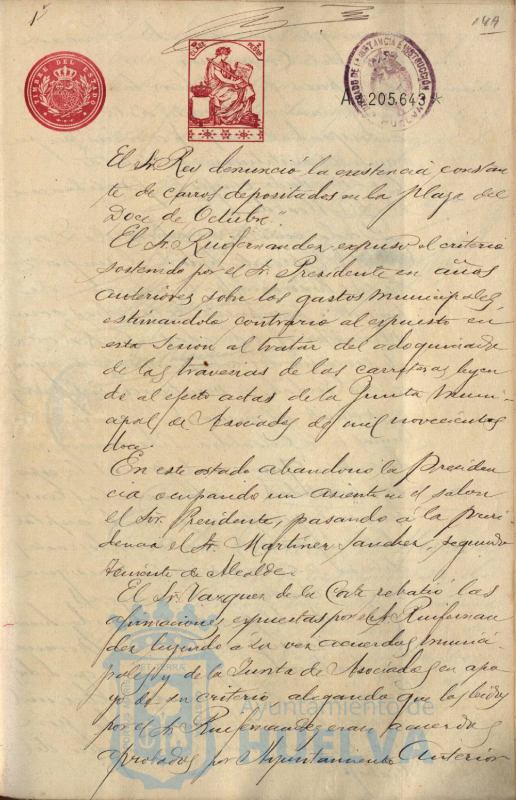 1º
144
TIMBRE DEL ESTADO
CLASE
JUZGADO DE 1ª INSTANCIA E INSTRUCCIÓN
HUELVA
A. 205,643*
El Sr. Rey denunció la existencia constan
te de carros depositados en la plaza del
Doce de Octubre."
El Sr. Ruifernandez expuso el criterio
sostenido por el Sr. Presidente en años
anteriores sobre los gastos municipales,
estimándolo contrario al expuesto en
esta sesión al tratar del adoquinado
de las travesias de las carreteras leyen
do al efecto actas de la Junta muni-
cipal de Asociados de mil novecientos
doce.
En este estado abandonó la Presiden
cia ocupando un asiento en el salon
el Sor. Presidente, pasando á la presi
dencia el Sr. Martinez Sanchez, segundo
teniente de Alcalde.
El Sr. Vazquez de la Corte rebatió las
afirmaciones expuestas por el Sr. Ruifernan
dez leyendo a la vez acuerdos munici
pales y de la Junta de Asociados en apo
yo de su criterio alegando que los leidos
por el Sr. Ruifernandez eran acuerdos
aprobados por Ayuntamiento anterior
Ayuntamiento de
HUELVA